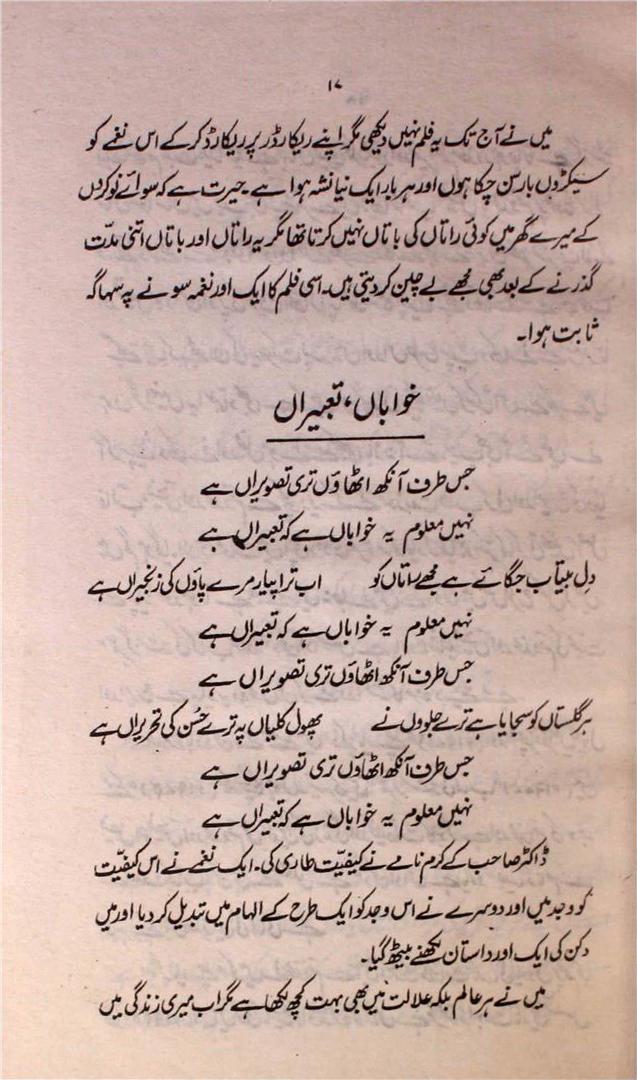 ۱۷
میں نے آج تک یہ فلم نہیں دیکھی مگر اپنے ریکارڈر پر ریکارڈ کر کے اس نغمے کو
سیکڑوں بار سن چکا ہوں اور ہر بار ایک نیا نشہ ہوا ہے۔ حیرت ہے کہ سوائے نوکروں
کے میرے گھر میں کوئی راتاں کی باتاں نہیں کرتا تھا مگر یہ راتاں اور باتاں اتنی مدّت
گذرنے کے بعد بھی مجھے بے چین کر دیتی ہیں۔ اسی فلم کا ایک اور نغمہ سونے پہ سہاگہ
ثابت ہوا۔
خواباں، تعبیراں
جس طرف آنکھ اٹھاؤں تری تصویراں ہے
نہیں معلوم یہ خواباں ہے کہ تعبیراں ہے
دل بیتاب جگائے ہے مجھے راتاں کو اب ترا پیار مرے پاؤں کی زنجیراں ہے
نہیں معلوم یہ خواباں ہے کہ تعبیراں ہے
جس طرف آنکھ اٹھاؤں تری تصویراں ہے
ہر گلستاں کو سجایا ہے ترے جلووں نے پھول کلیاں پہ ترے حُسن کی تحریراں ہے
جس طرف آنکھ اٹھاؤں تری تصویراں ہے
نہیں معلوم یہ خواباں ہے کہ تعبیراں ہے
ڈاکٹر صاحب کے کرم نامے نے کیفیّت طاری کی۔ ایک نغمے نے اس کیفیّت
کو وجد میں اور دوسرے نے اس وجد کو ایک طرح کے الہام میں تبدیل کر دیا اور میں
دکن کی ایک اور داستان لکھنے بیٹھ گیا۔
میں نے ہر عالم بلکہ علالت میں بھی بہت کچھ لکھا ہے مگر اب میری زندگی میں